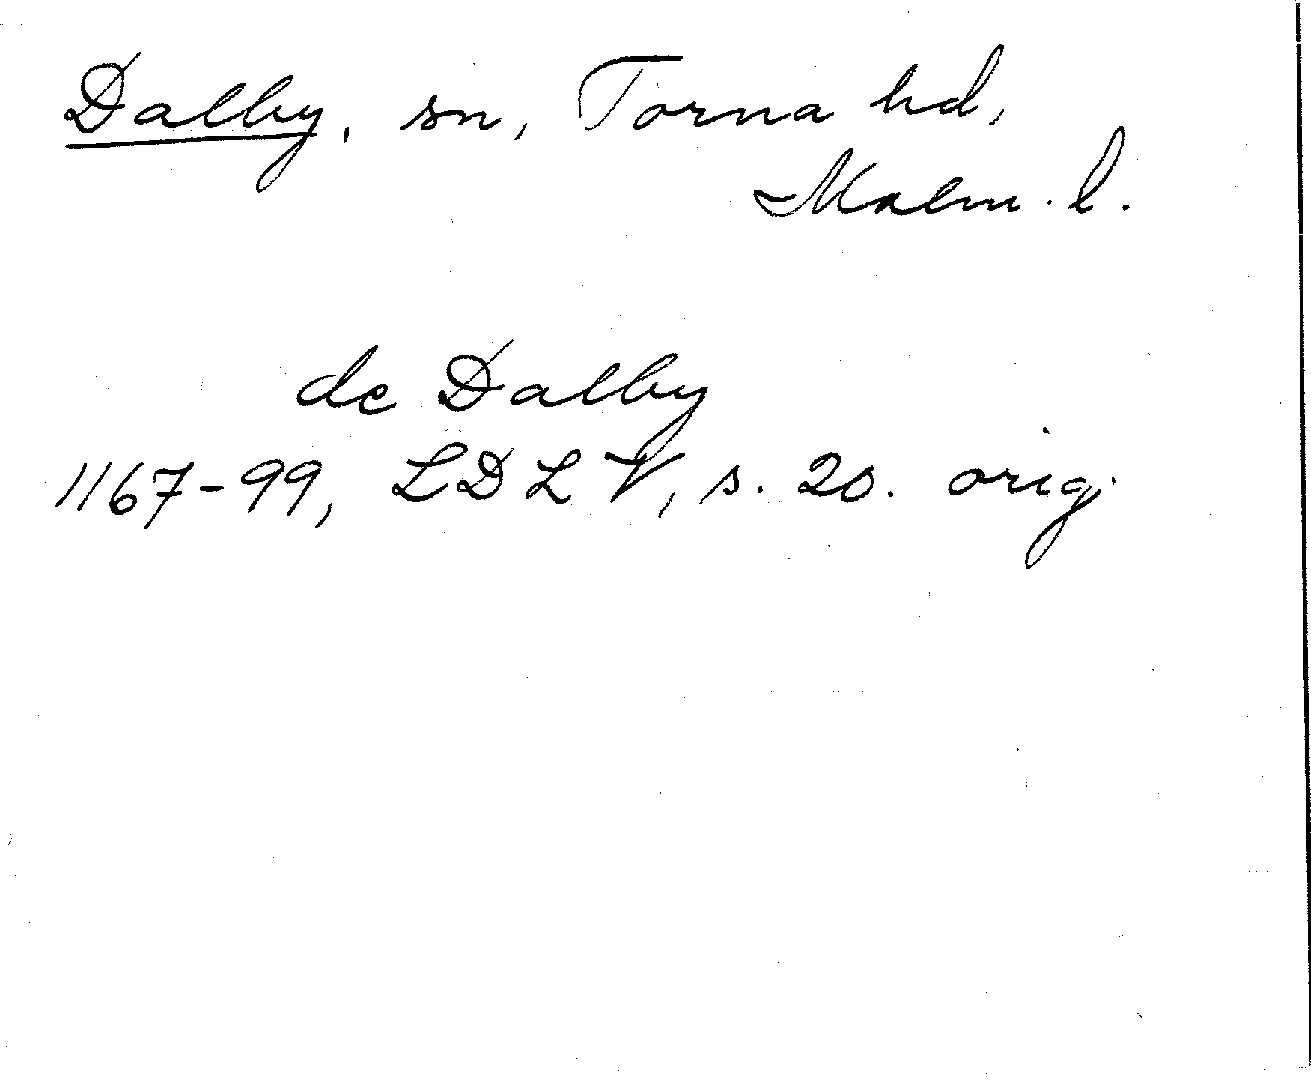 Dalby, sn, Torna hd,
Malm. l.
de Dalby
1167-99, LDLV, s. 20. orig.